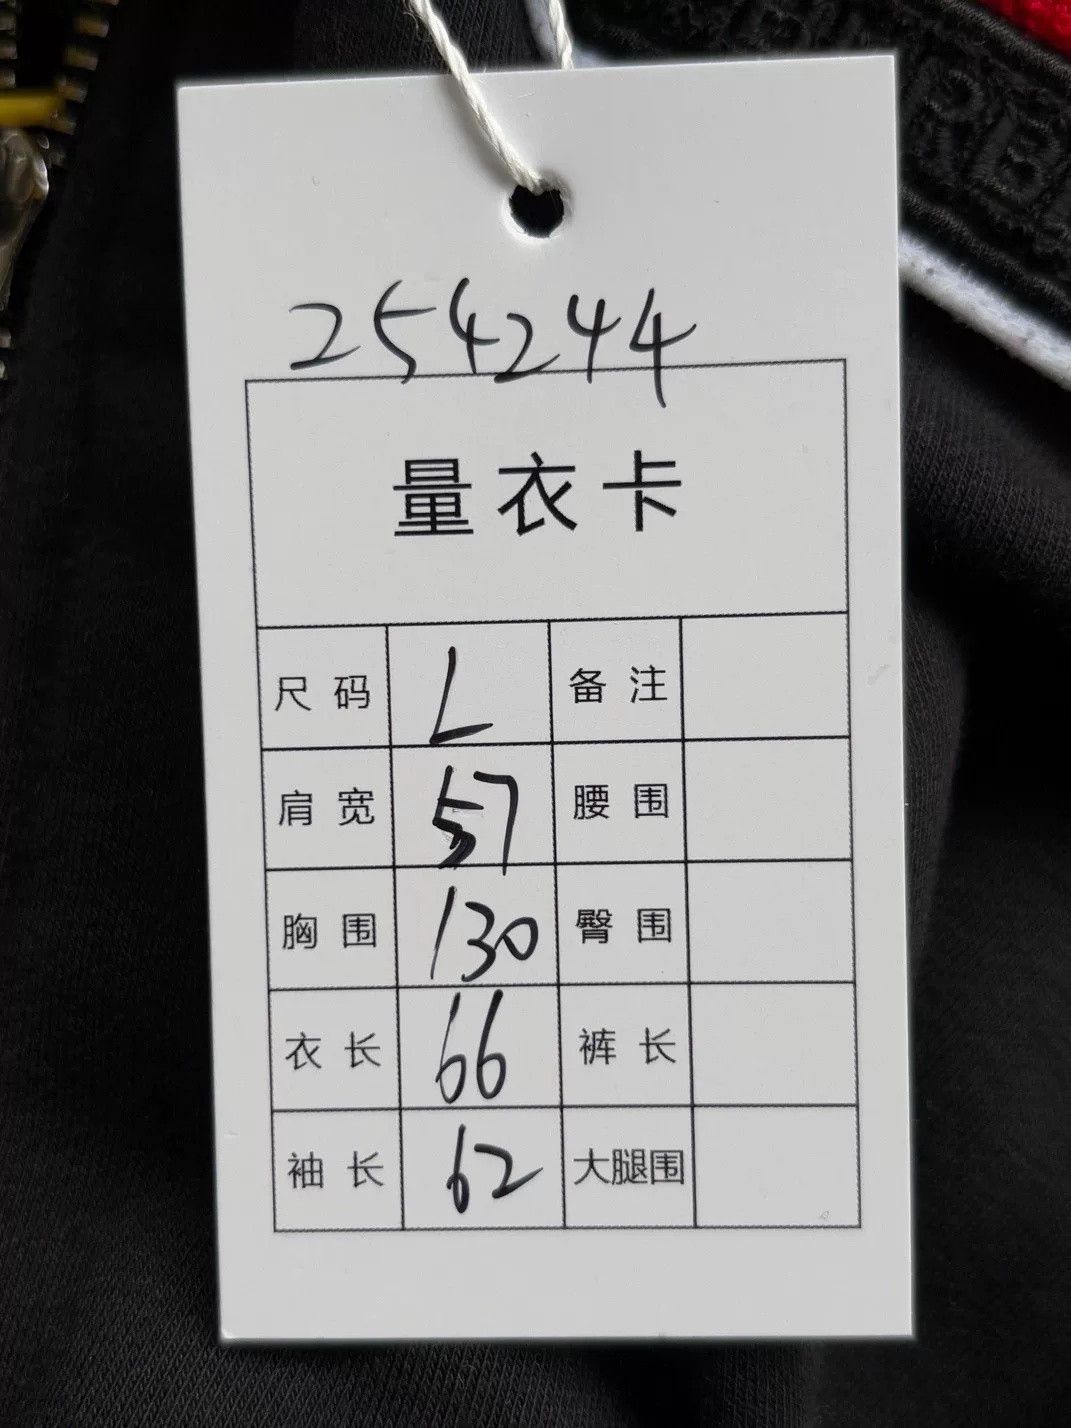 254244
量衣卡
尺码 L 备注
肩宽 57 腰围
胸围 130 臀围
衣长 66 裤长
袖长 62 大腿围